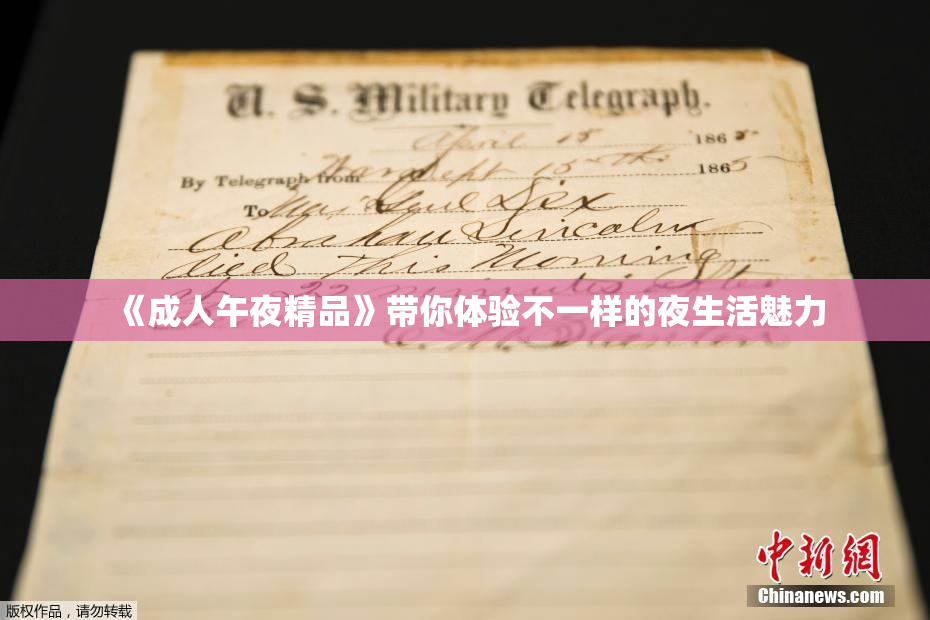 U. S. Military Telegraph.
April 15 1865
By Telegraph from War Dept 15th 1865
To Maj Genl Dix
Abraham Lincoln
died this Morning
at 22 minutes after
《成人午夜精品》带你体验不一样的夜生活魅力
E. M. Stanton
中新网
Chinanews.com
版权作品，请勿转载